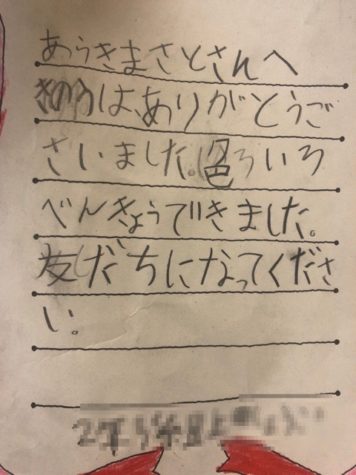 あうきまさとさんへ
きのうは、ありがとうご
ざいました。色ろいろ
べんきょうできました。
友だちになってくださ
い。